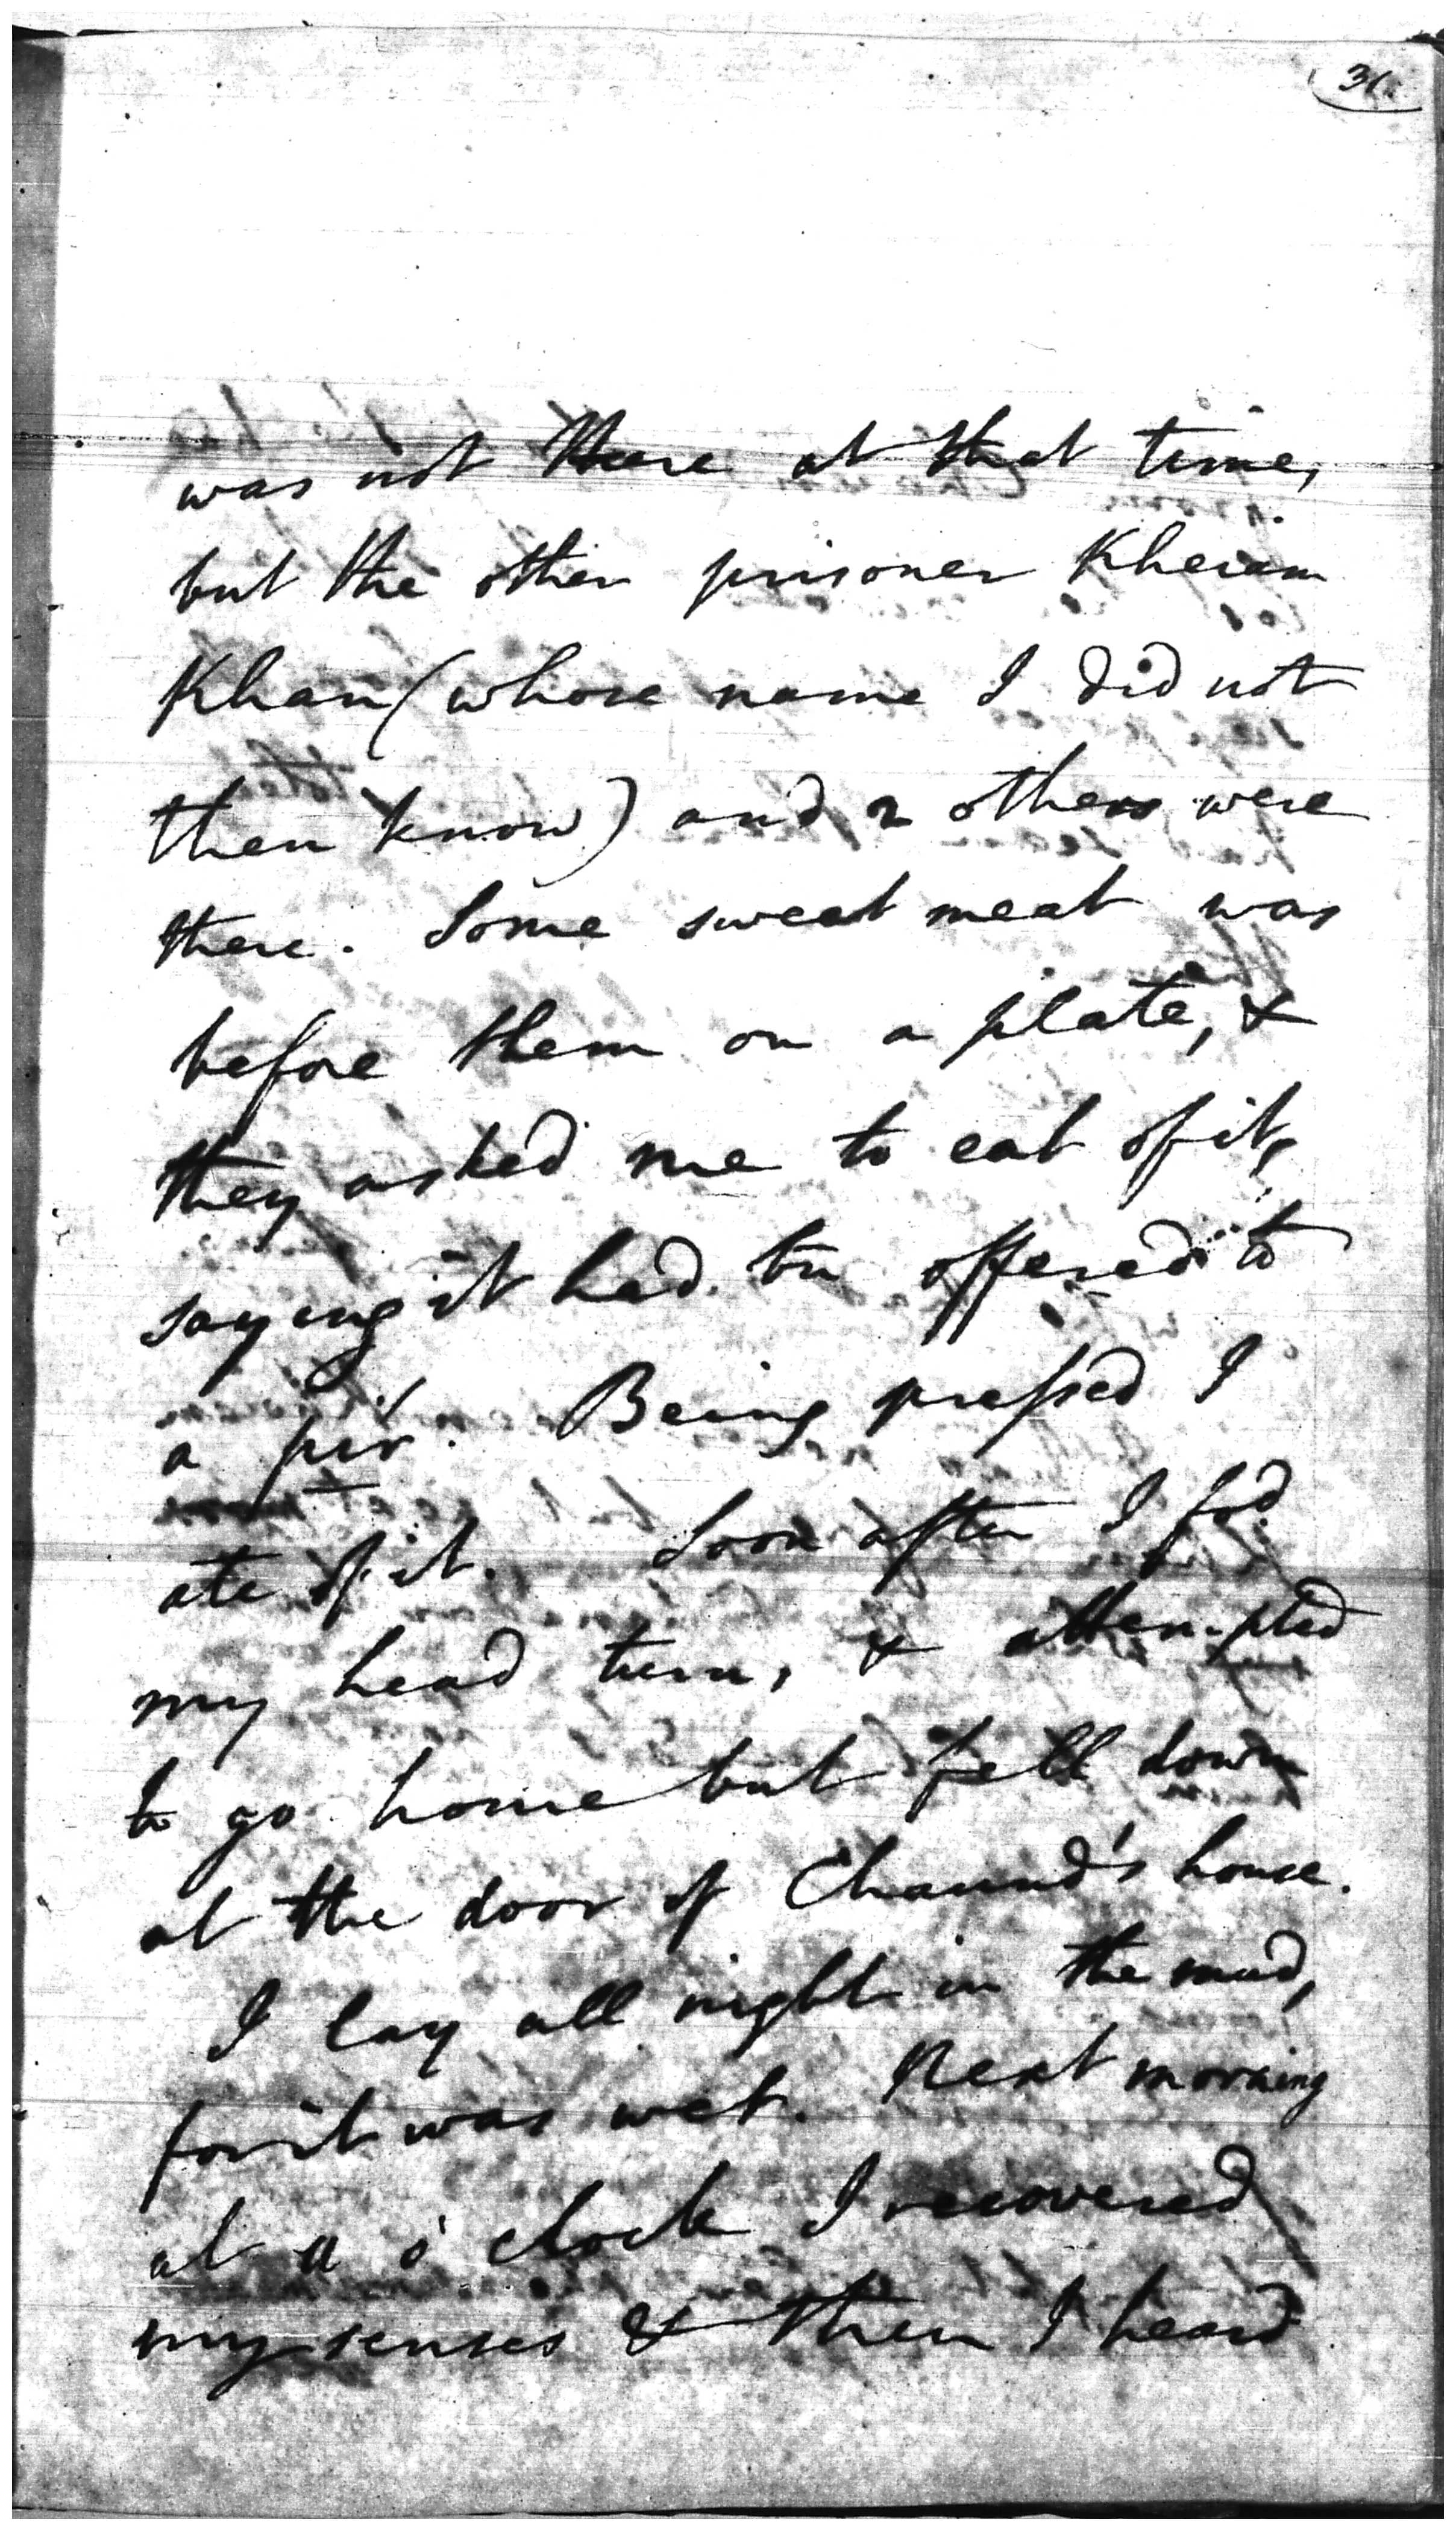 was not there at that time,
but the other prisoner Kheram
Khan (whose name I did not
then know) and 2 others were
there. Some sweet meat was
before them on a plate, &
they asked me to eat of it,
saying it had bn offered to
a pir. Being pressed I
ate of it. Soon after I fod
my head turn, & attempted
to go home but fell down
at the door of Chaund's house.
I lay all night in the mud,
for it was wet. Next morning
at a o' clock I recovered
my senses & then I heard